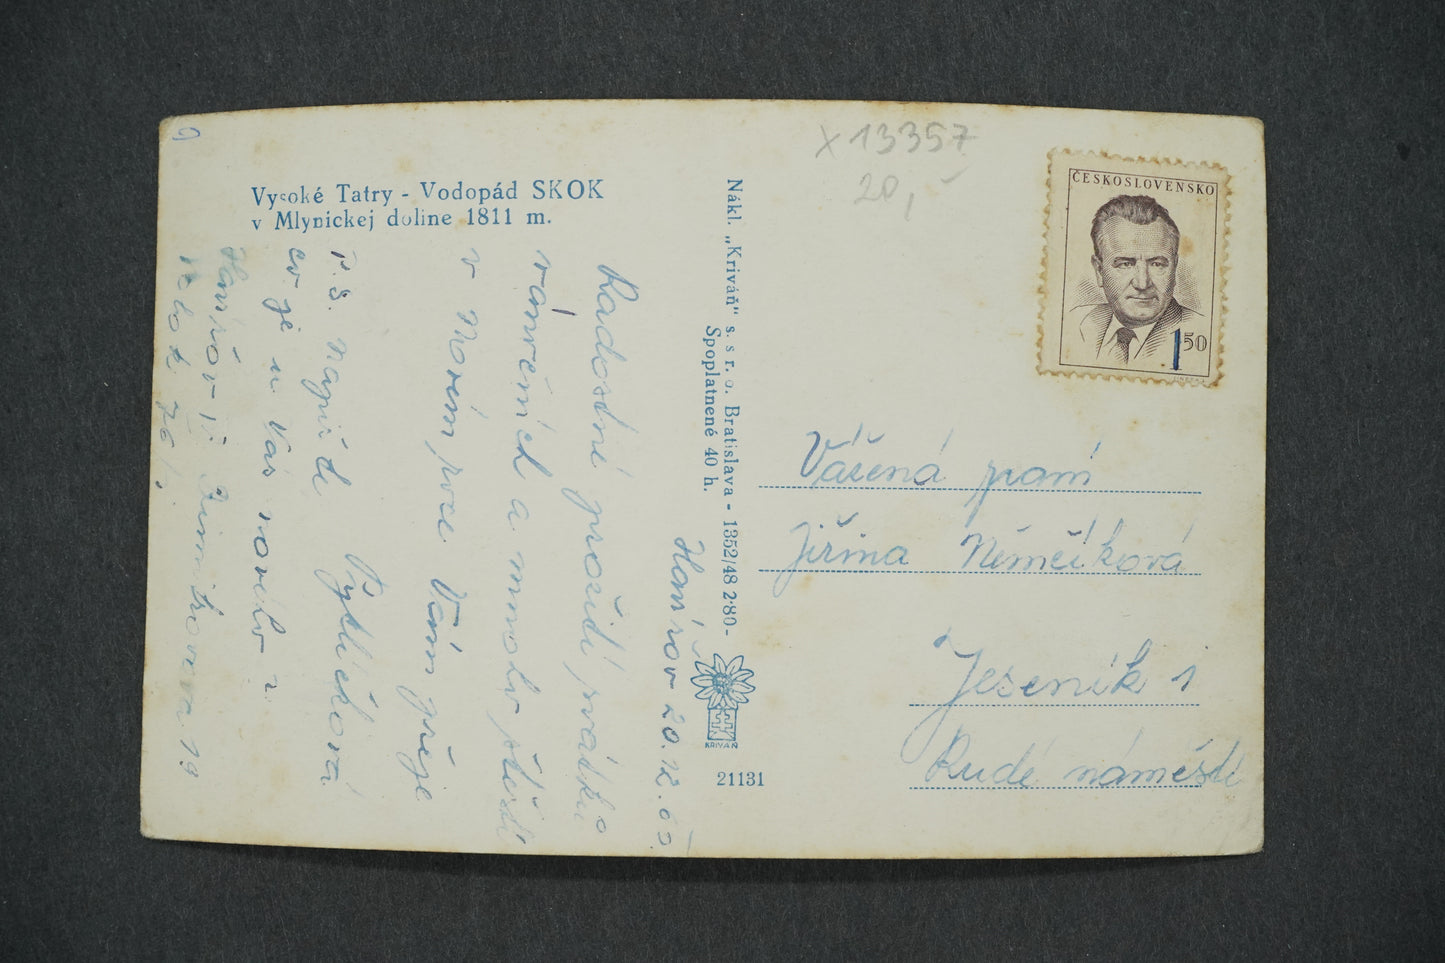 X 13357
20,-
ČESKOSLOVENSKO
1 50
Vysoké Tatry - Vodopád SKOK
v Mlynickej doline 1811 m.
Nákl. „Kriváň" s. s r. o. Bratislava - 1352/48 2·80-
Spoplatnené 40 h.
KRIVÁŇ
21131
Vážená paní
Jiřina Němečková
Jeseník 1
Rudé náměstí
20.12.
Radostné prožití svátků
vánočních a mnoho štěstí
v Novém roce Vám přeje
P.S. Napiš
co je u Vás nového